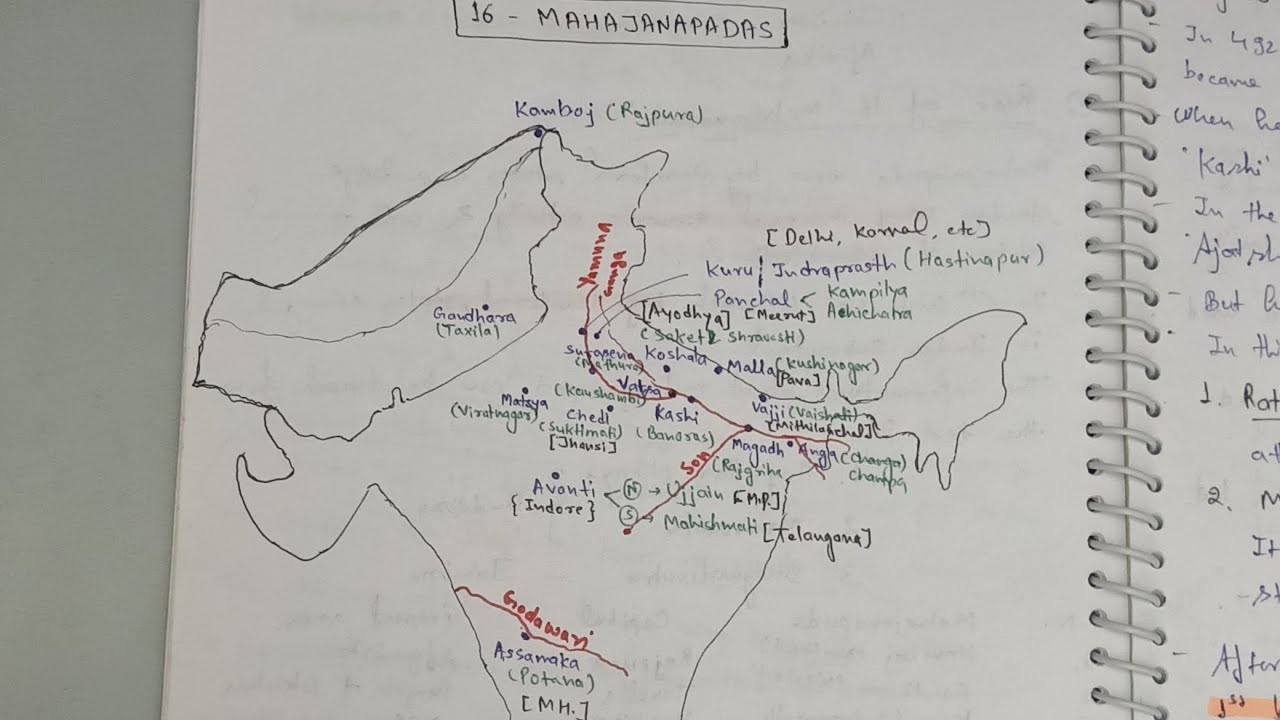 16 - MAHAJANAPADAS
Kamboj (Rajpura)
Yamuna
Ganga
[Delhi, Karnal, etc]
Kuru / Indraprasth (Hastinapur)
Panchal < Kampilya
[Meerut] Ahichatra
[Ayodhya]
(Saket & Shravasti)
Gandhara
(Taxila)
Surasena
(Mathura)
Koshala
Malla (Kushinagar)
[Pava]
Matsya
(Viratnagar)
Vatsa
(Kaushambi)
Chedi
(Suktimati)
[Jhansi]
Kashi
(Banaras)
Vajji (Vaishali)
Magadh
(Rajgriha
Anga (Changa)
Champa
Son
Avanti
{Indore}
(N) → Ujjain [M.P.]
(S) → Mahishmati [Telangana]
Godawari
Assamaka
(Potana)
[MH.]
In 492
became
when he
'Kashi'
In the
But h
In thi
1.
at
2. M
It
After
1st